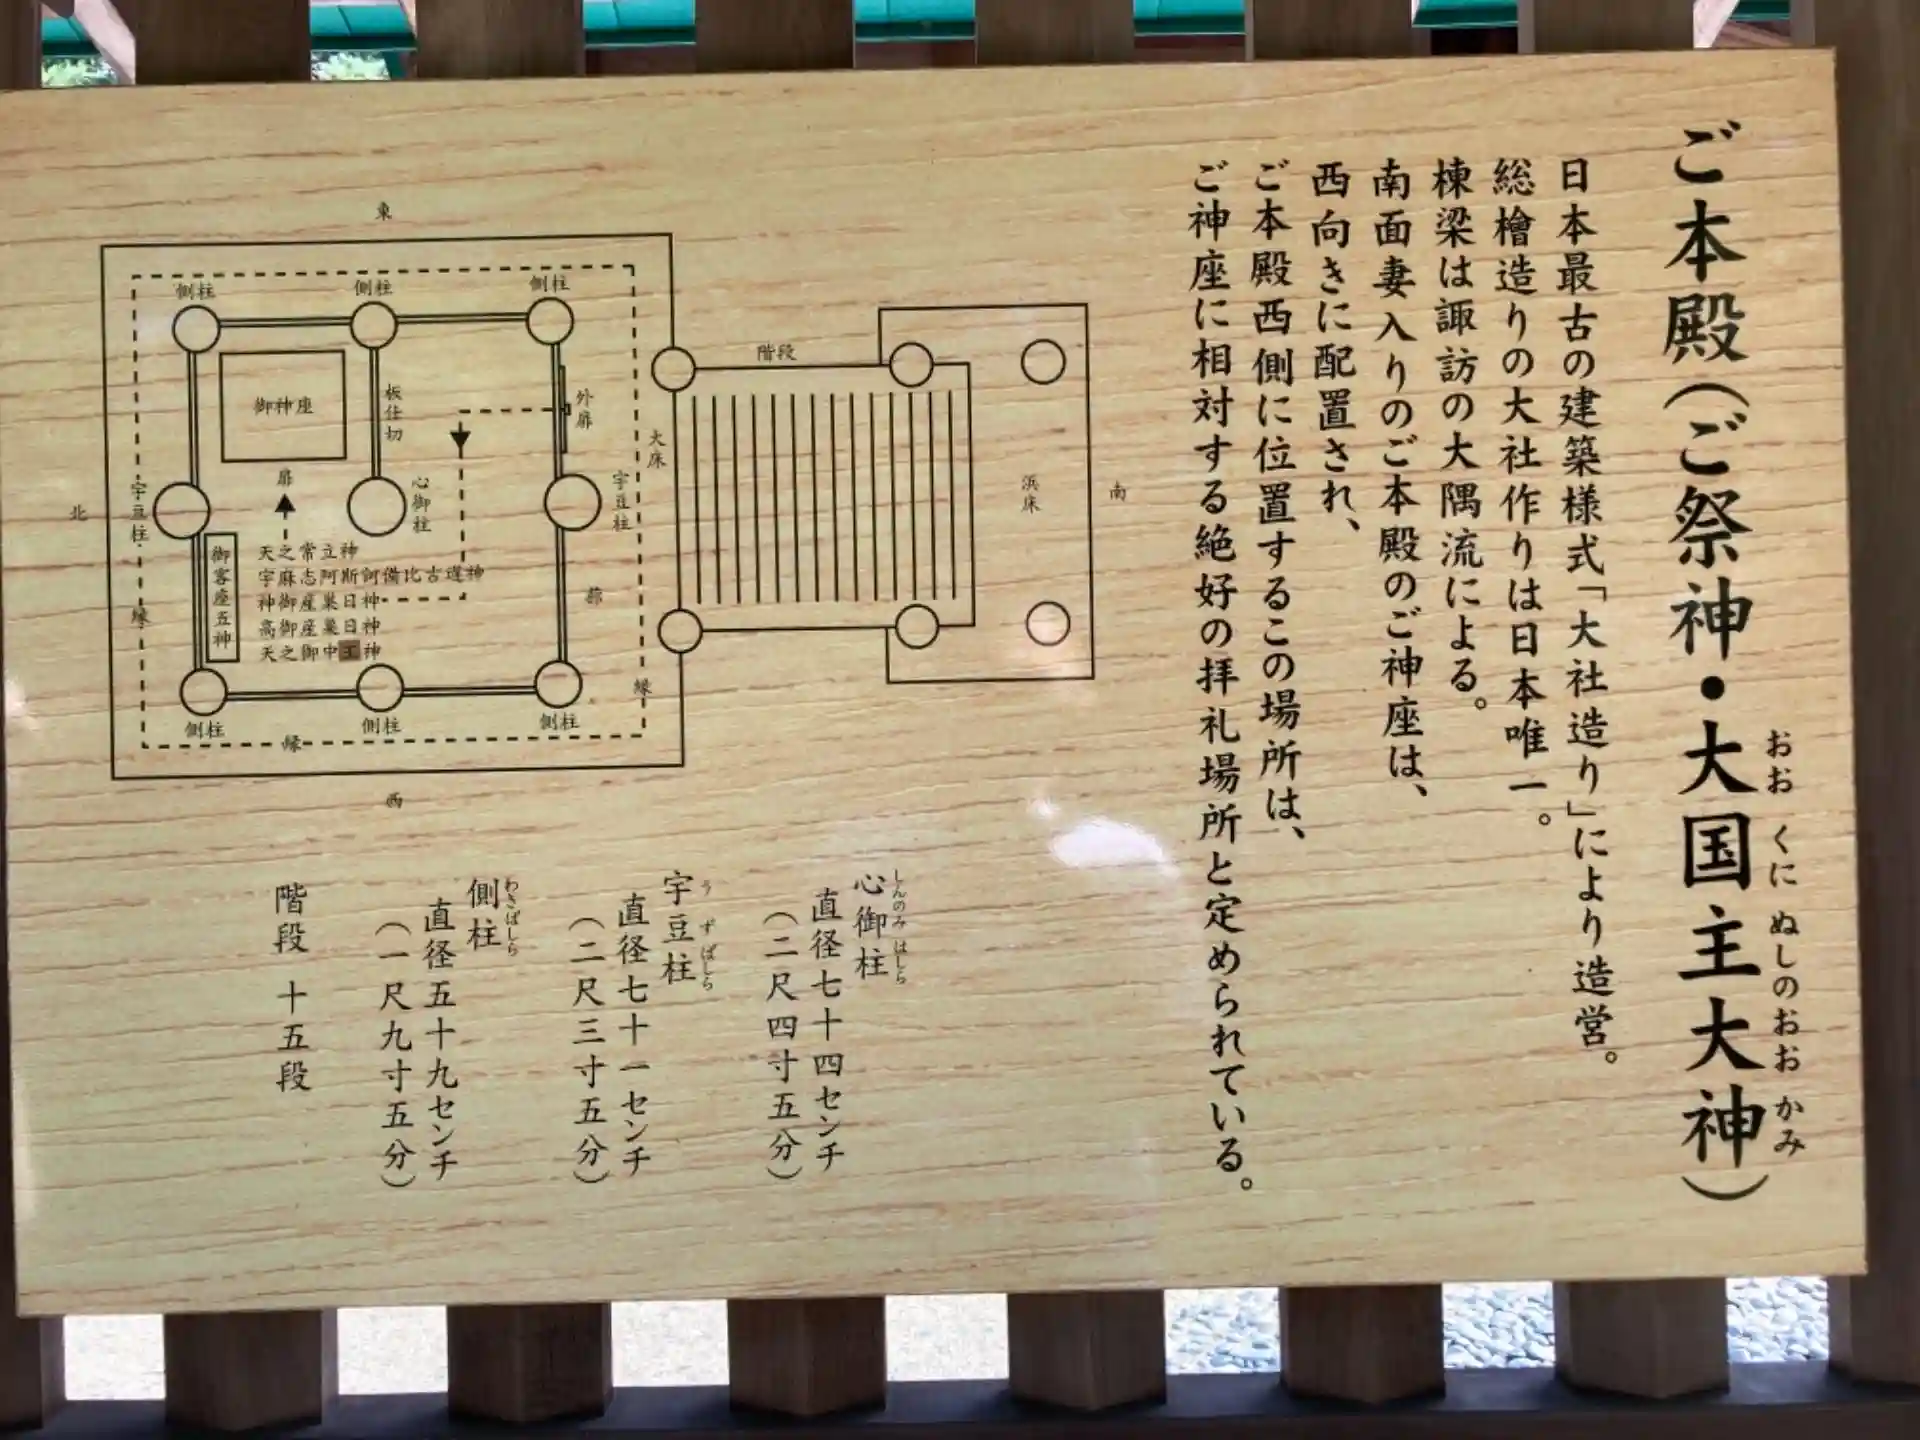 ご本殿(ご祭神・大国主大神)
おお くに ぬしの おお かみ
日本最古の建築様式「大社造り」により造営。
総檜造りの大社作りは日本唯一。
棟梁は諏訪の大隅流による。
南面妻入りのご本殿のご神座は、
西向きに配置され、
ご本殿西側に位置するこの場所は、
ご神座に相対する絶好の拝礼場所と定められている。
東
側柱
側柱
側柱
御神座
板仕切
外扉
階段
大床
浜床
南
北
宇豆柱
扉
心御柱
宇豆柱
御客座五神
天之常立神
宇麻志阿斯訶備比古遅神
神御産巣日神
高御産巣日神
天之御中主神
蔀
縁
縁
側柱
側柱
側柱
縁
西
心御柱
しんのみ はしら
直径七十四センチ
(二尺四寸五分)
宇豆柱
う ず ばしら
直径七十一センチ
(二尺三寸五分)
側柱
わきばしら
直径五十九センチ
(一尺九寸五分)
階段 十五段